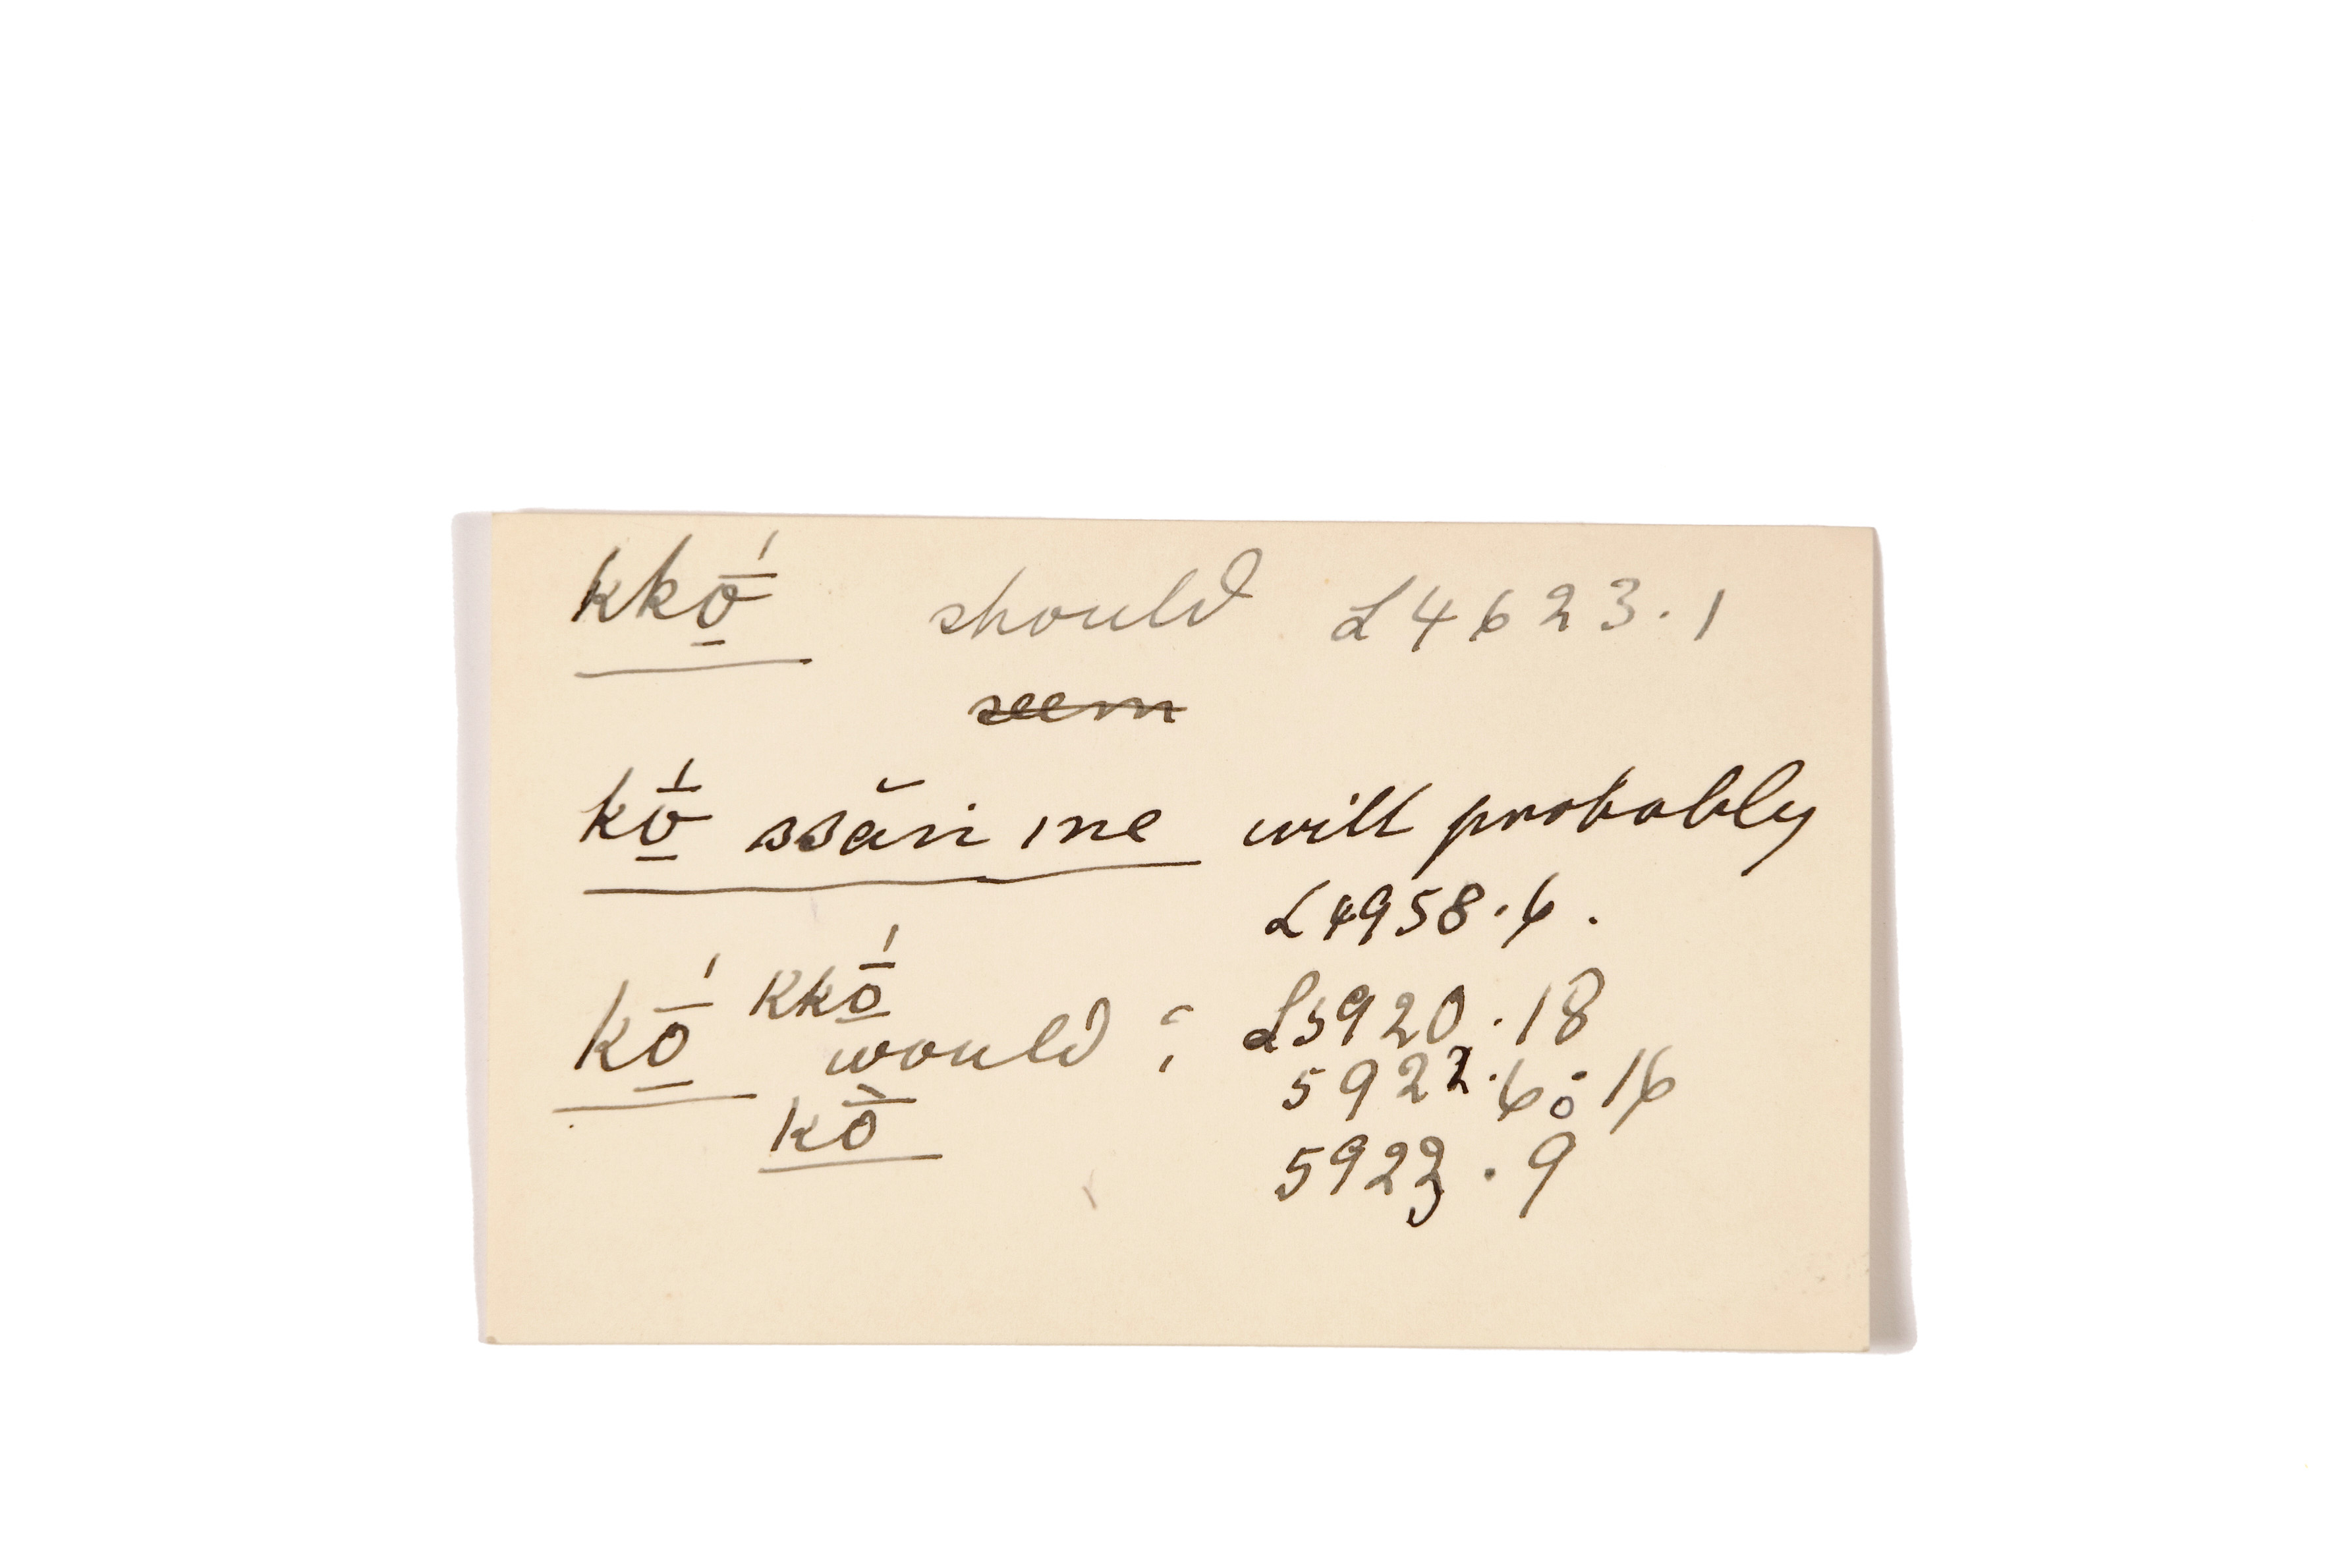 kkṓ̱ should L4623.1
seem
kṓ̱ ssăn ine will probably
L4958.6.
kkṓ̱
kṓ̱ would : L5920.18
5922.6:16
kṑ 5923.9